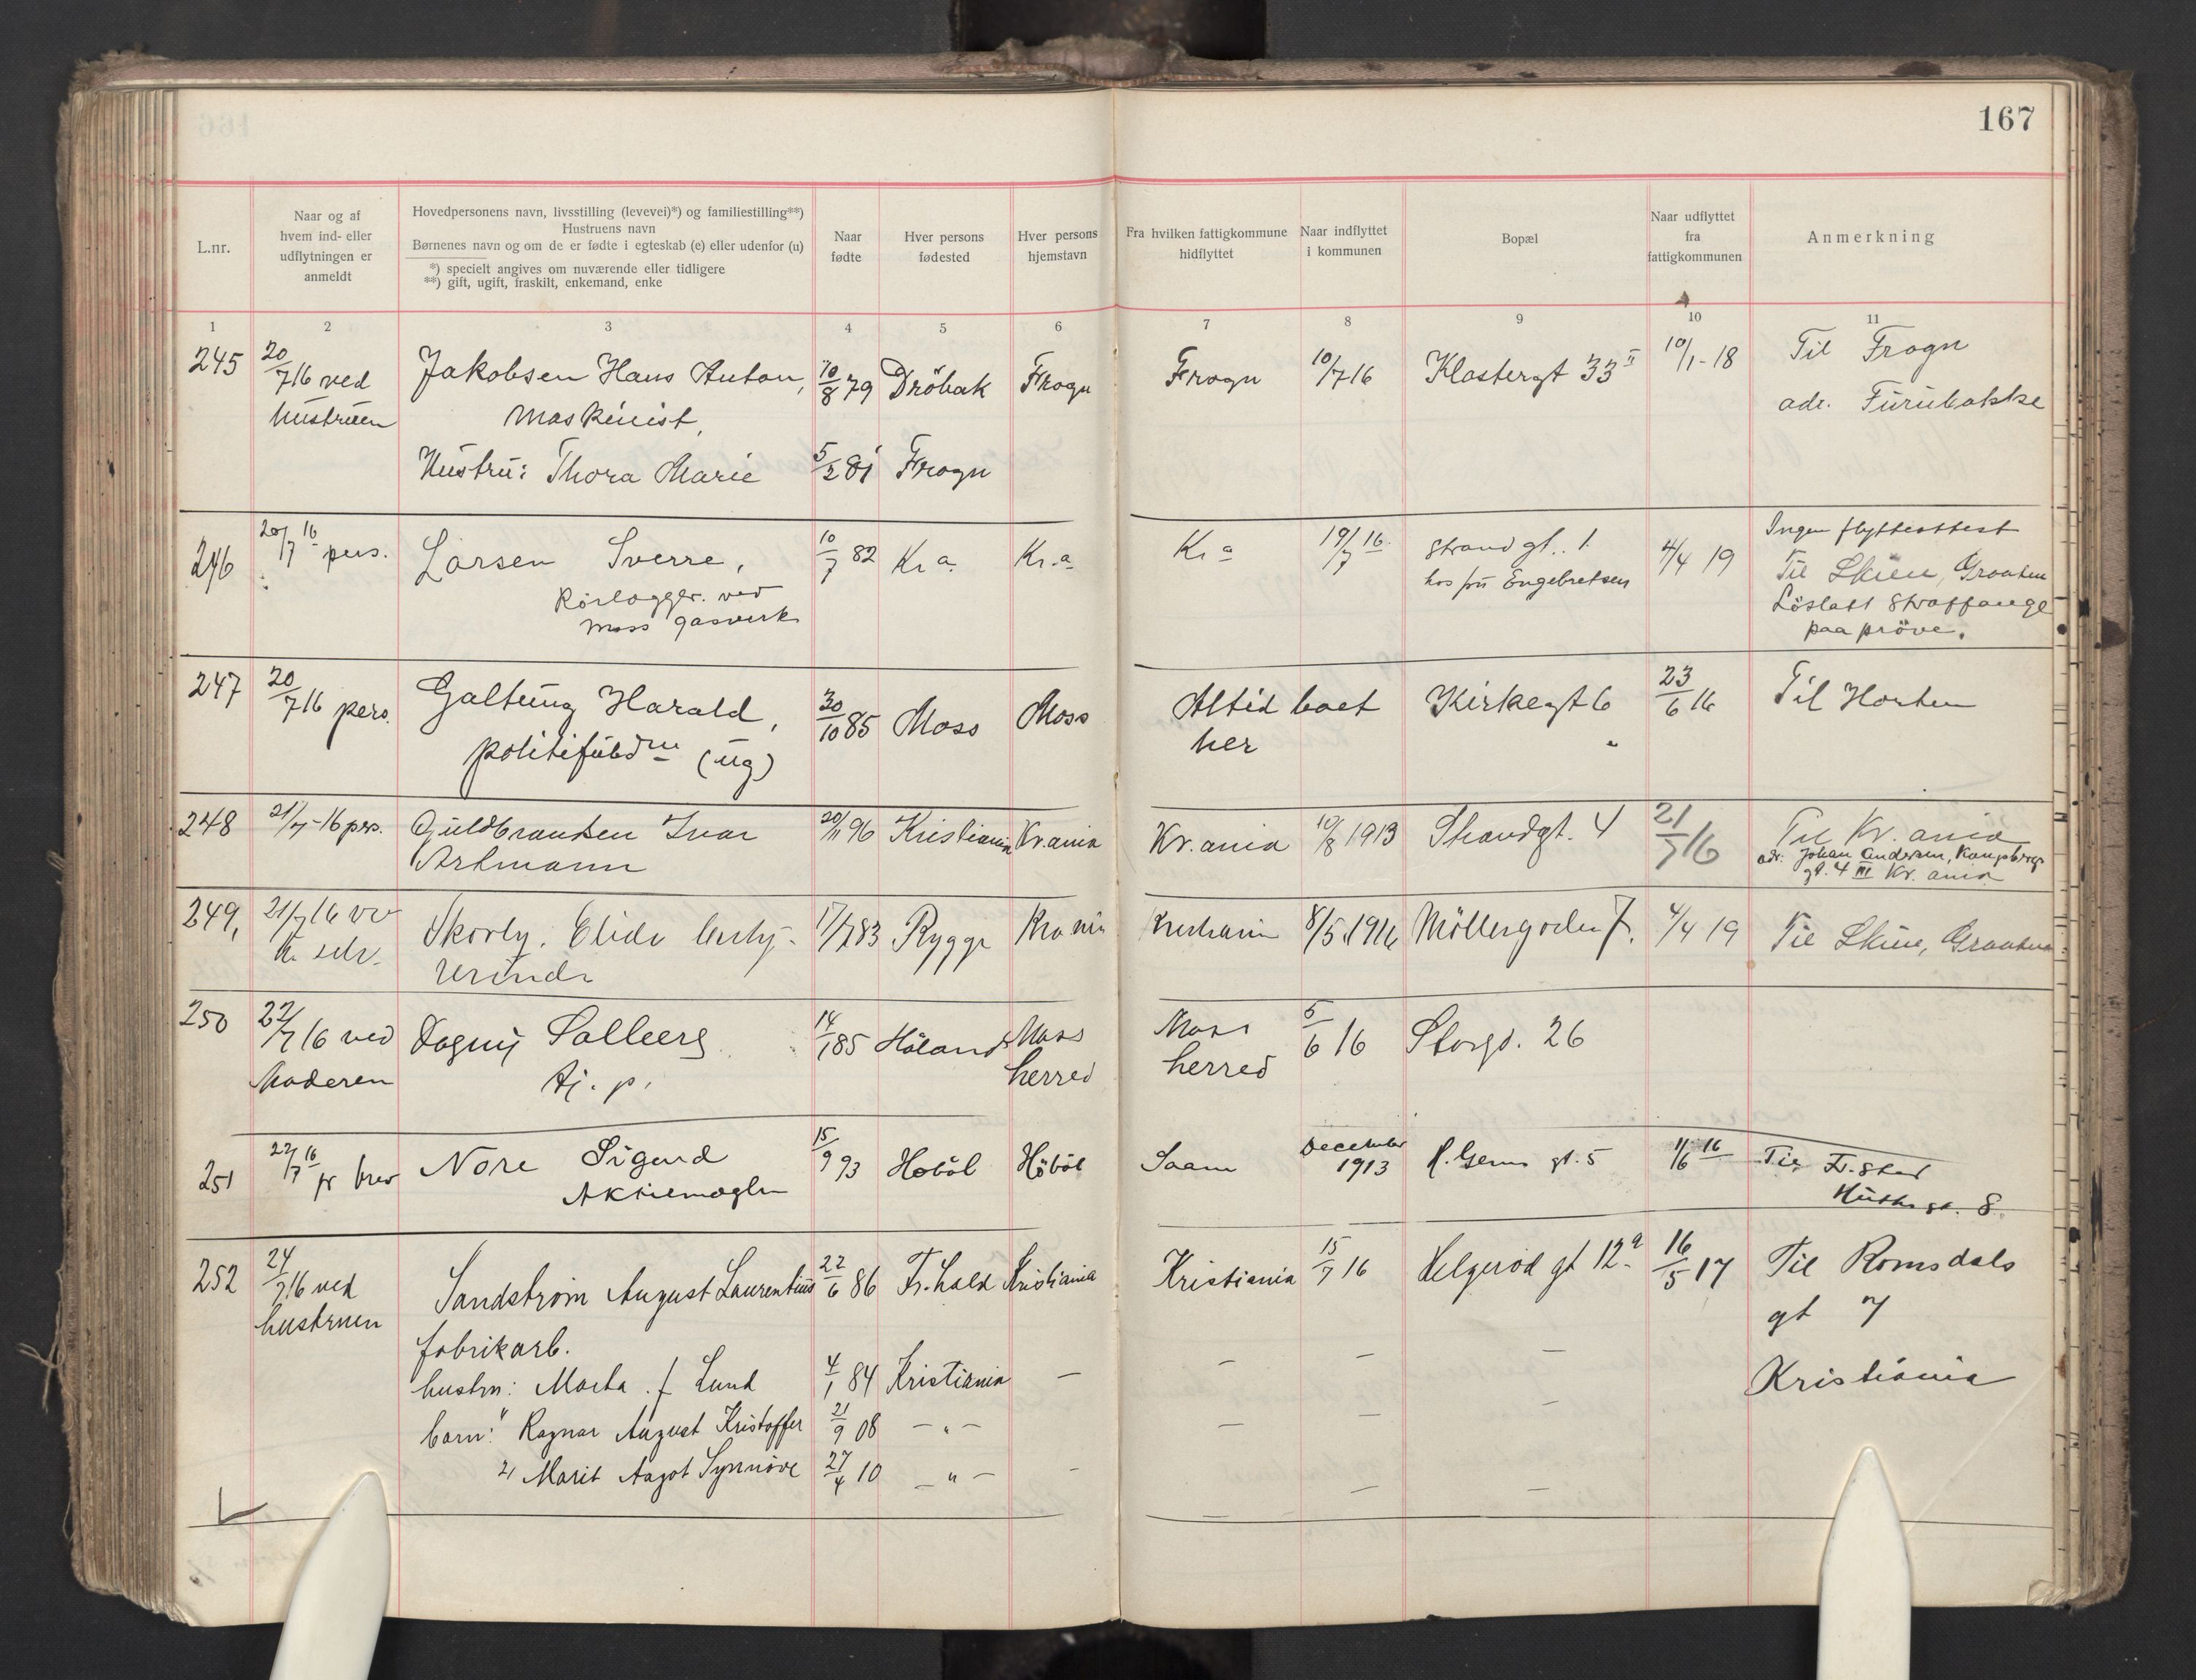 167
L.nr.
Naar og af
hvem ind- eller
udflytningen er
anmeldt
Hovedpersonens navn, livsstilling (levevei)*) og familiestilling**)
Hustruens navn
Børnenes navn og om de er fødte i egteskab (e) eller udenfor (u)
*) specielt angives om nuværende eller tidligere
**) gift, ugift, fraskilt, enkemand, enke
Naar
fødte
Hver persons
fødested
Hver persons
hjemstavn
Fra hvilken fattigkommune
hidflyttet
Naar indflyttet
i kommunen
Bopæl
Naar udflyttet
fra
fattigkommunen
Anmerkning
1 2 3 4 5 6 7 8 9 10 11
245 20/7 16 ved Jakobsen Hans Anton, 10/8 79 Dröbak Frogn Frogn 10/7 16 Klostergt 33 II 10/1-18 Til Frogn
hustruen maskinist, adr. Furubakke
Hustru: Thora Marie 5/2 81 Frogn
246 20/7 16 pers. Larsen Sverre, 10/7 82 Kr a. Kr.a. Kr a 19/7 16. Strandgt.. 1. 4/4 19 Ingen flytteattest
Rörlægger. ved hos fru Engebretsen Til Skien, Graaten
Moss gasverk Löslatt Straffange
paa pröve.
247 20/7 16 pers. Galtung Harald, 30/10 85 Moss Moss Altid boet Kirkegt 6 23/6 16 Til Horten
politifuldm (ug) her
248 21/7-16 pers. Guldbrandsen Ivar 20/11 96 Kristiania Kr.ania Kr.ania 10/8 1913 Strandgt. 4 21/7 16 Til Kr.ania
Artmann adr. Johan Andersen, Kongsbergs
gt. 4 III Kr. ania
249, 21/7 16 Skovly. Elide besty- 17/7 83 Rygge 8/5 1916 Möllergaden 7. 4/4 19 Til Skien, Graaten
rerinde
250 22/7 16 ved Dagny Solberg 14/1 85 Höland Moss Moss 5/6 16 Storgd. 26
Moderen tj. p. herred herred
251 22/7 16 Nore Sigurd 15/9 93 Hobøl Höböl Saam December R. Gerns gt. 5 11/6 16 Til Fr.stad
pr brev Aktiemægler 1913 gt. 8.
252 24/7 16 ved Sandström August Laurentius 22/6 86 Fr.hald Kristiania Kristiania 15/7 16 Helgerød gt 12a 16/5 17 Til Romsdals
hustruen fabrikarb. gt 7
hustru: Marta f Lund 4/1 84 Kristiania — — — — Kristiania
barn: 1) Ragnar August Kristoffer 21/9 08 — " — — — —
2) Marit Aagot Synnöve 27/4 10 — " — — — —